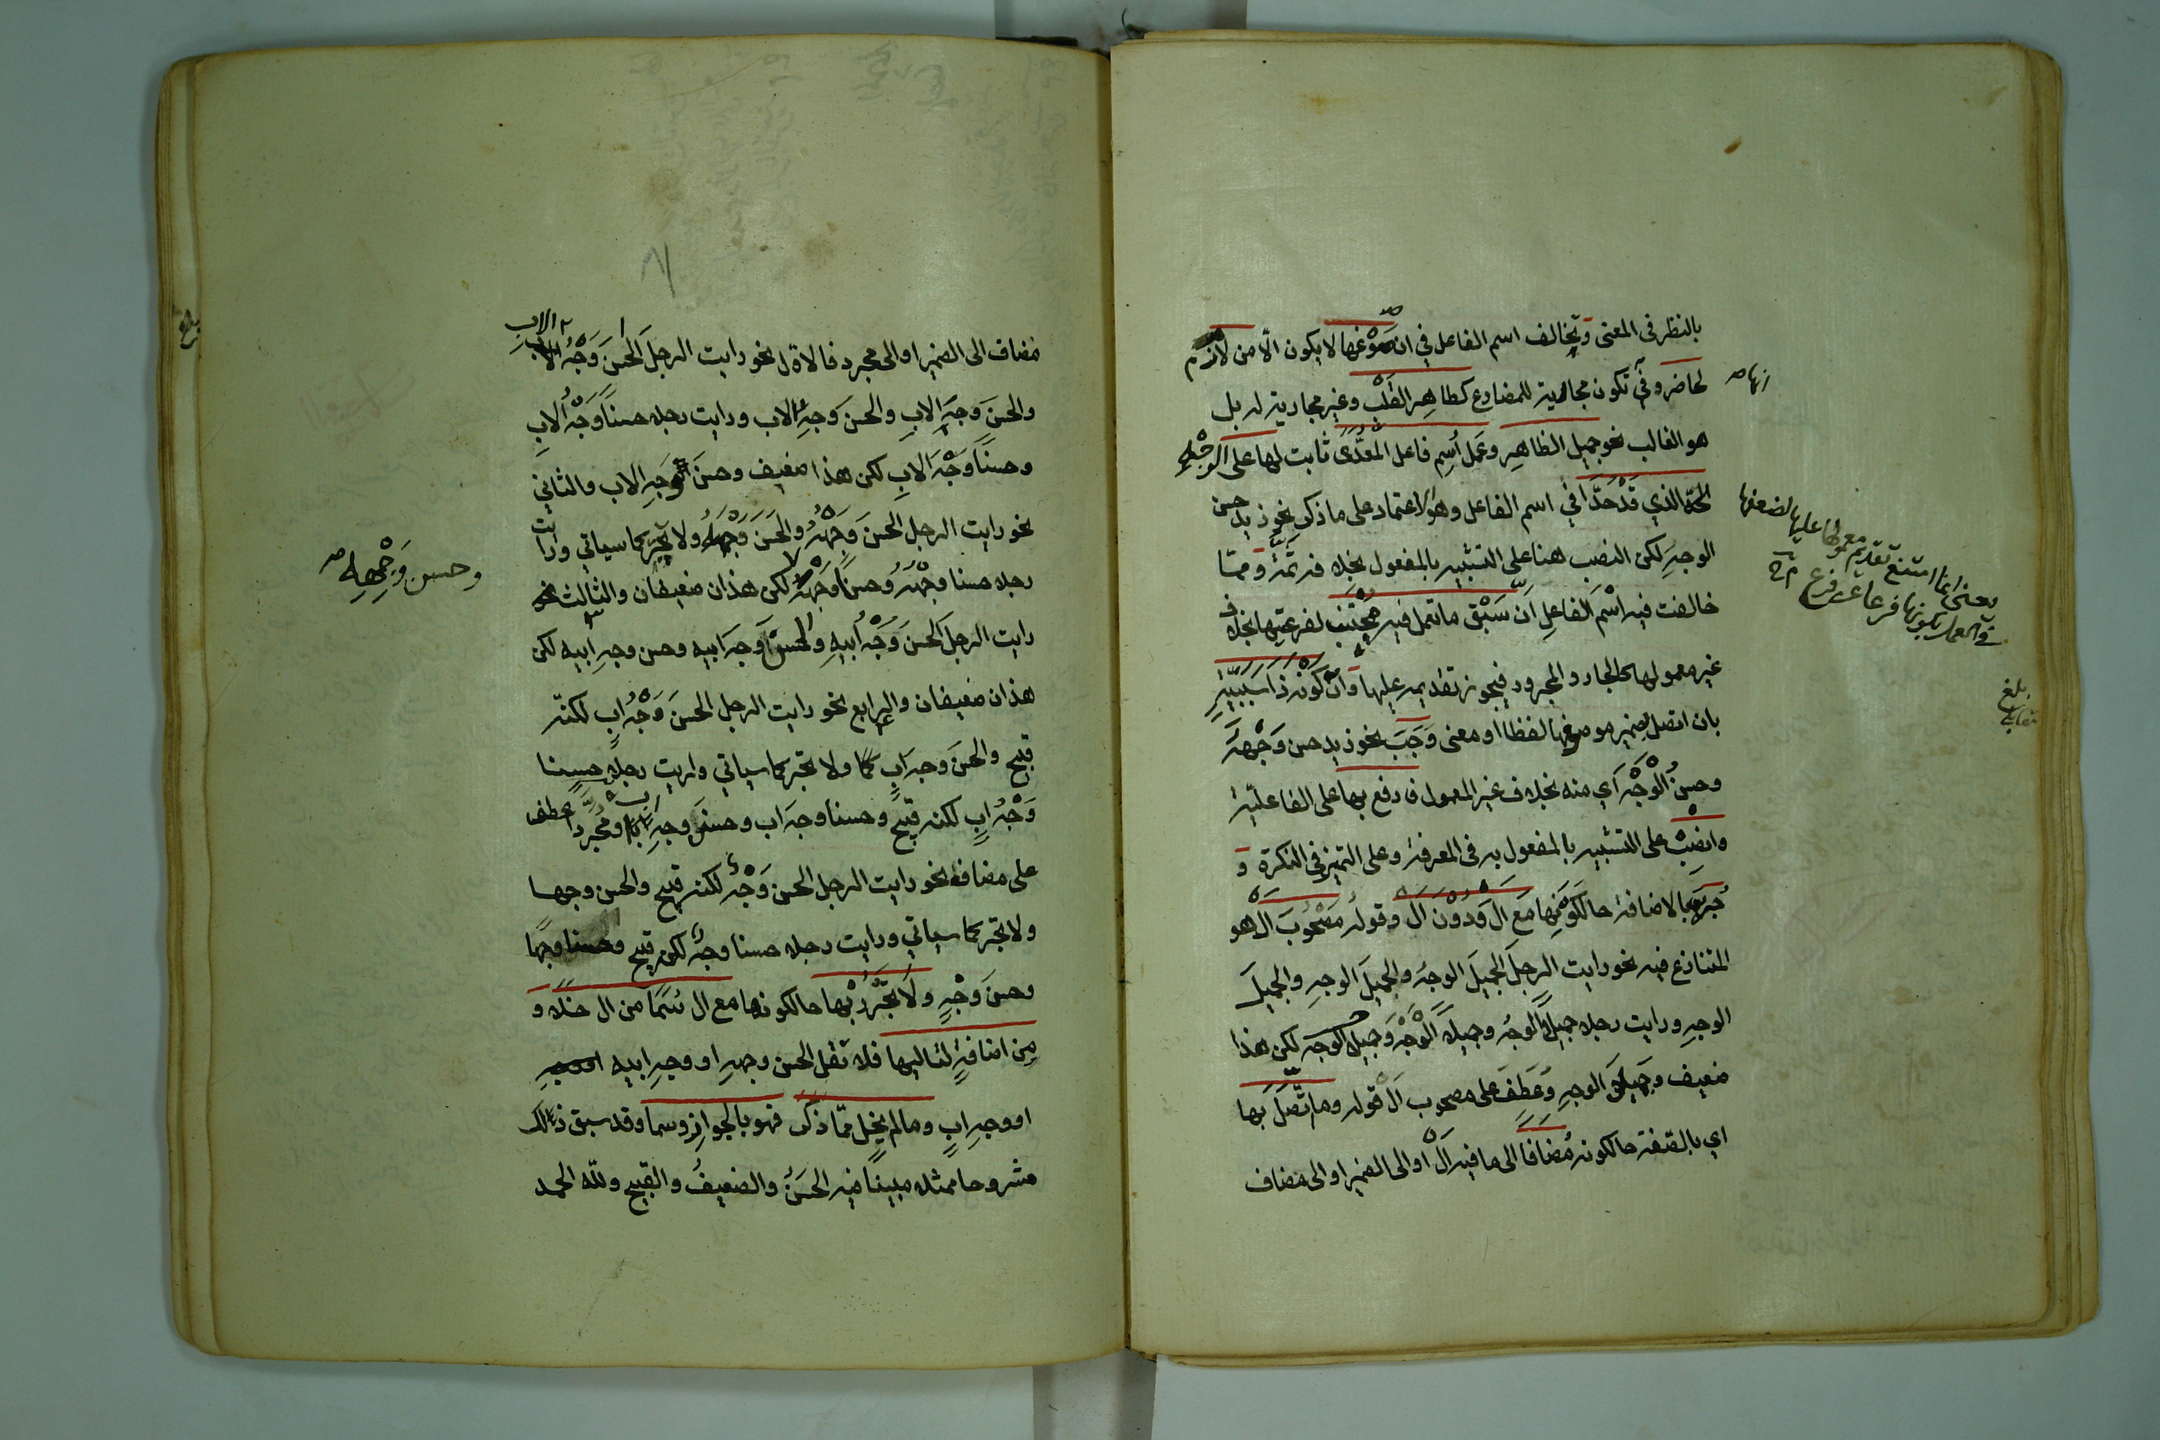 بالنظر فى المعنى وتخالف اسم الفاعل في ان صوغها لا يكون الّا من لازم
لحاضر وفي أنها تكون مجارية للمضارع كطاهر القلب وغير مجارية له بل
هو الغالب نحو جميل الظاهر وعمل اسم فاعل المُعَدَّى ثابت لها على الوجه
الحد الذي قَدْ حُدَّا في اسم الفاعل وهو الاعتماد على ما ذكر نحو زيد حسن
الوجهِ لكن النصب هنا على التشبيه بالمفعول بخلافه ثمّة وممّا
خالفت فيه اسْمَ الفاعلِ انّ سَبْق ما تعمل فيه مُجْتَنَب لفرعيتها بخلاف
غير معمولها كالجار والمجرور فيجوز تقديمه عليها وأن كَوْنه ذا سَبَبيّةٍ
بان اتصل بضمير موصوفها لفظا او معنى وَجَبَ نحو زيد حسن وَجْهُهُ
وحسنُ الْوَجْهُ أي منه بخلاف غير المعمول فارفع بها على الفاعلية
وانصِبْ على التشبيه بالمفعول به فى المعرفة وعلى التمييز فى النكرة و
جُرَّ بالاضافة حالكونها مَعَ ال وَدُوْنَ ال وقوله مَصْحُوبَ ال هو
المتنازع فيه نحو رايت الرجلَ الجميلَ الوجهُ والجميلَ الوجهِ والجميلَ
الوجهِ ورايت رجلا جميلاً الوجهُ وجميلاً الْوَجْهَ وَجميل الوجه لكن هذا
ضعيف وجَميلَ الوجهِ وَعَطِفَ على مصحوب ال قوله وما اتّصَلَ بها
اي بالصّفة حالكونه مُضَافًا الى ما فيه الْ او الى الضمير او الى مضاف
انها صح
يعنى انما امتنع تقديم معمولها عليها لضعفها
في العمل بكونها فرعا عن فرع
بلغ
مقابلة
مضاف الى الضمير او الى مجرد فالاوّل نحو رايت الرجلَ الحَسَنَ وَجْهُ الأبِ
والحسَنَ وَجهَ الابِ والحسنَ وَجهِ الاب ورايت رجلا حسناً وَجْهُ الابِ
وحسناً وَجْهَ الابِ لكن هذا ضعيف وحسنَ وَجهِ الاب والثاني
نحو رايت الرجل الحسنَ وَجْهُهُ والحَسَنَ وَجْهَهُ ولا تجرّ كما سياتي ورايت
رجلا حسنا وجْهُهُ وحسناً وَجْهَهُ لكن هذان ضعيفان والثالث نحو
رايت الرجلَ الحسنَ وَجْهُ ابيهِ والحسَنَ وَجهَ ابيه وحسن وجهِ ابيه لكن
هذان ضعيفان والرابع نحو رايت الرجل الحسنَ وَجْهُ ابٍ لكنّه
قبيح والحسَنَ وجهَ ابٍ ولا تجرّ كما سياتي ورايت رجلا حسنا
وَجْهُ ابٍ لكنه قبيح وحسنا وجهَ اب وحسنَ وجهِ ابٍ او مُجَرَّدا عطف
على مضافا نحو رايت الرجل الحسن وَجْهٌ لكنه قبيح والحسن وجها
ولا تجرّ كما سياتي ورايت رجلا حسنا وجهٌ لكنه قبيح وحسنا وجهًا
وحسَنَ وَجْهٍ ولا تَجْرُرْ بها حالكونها مع ال سُمًا من ال خلا و
مِن اضافةٍ لتاليها فلا تقل الحسن وجههِ او وجهِ ابيه
او وجهِ ابٍ وما لم يخل ممّا ذكر فهو بالجوازِ وسما وقد سبق ذلك
مشروحا ممثلا مبيناً فيه الحسَنُ والضعيفُ والقبيح وللّه الحمد
وحسن وَجْهِهِ صح
بلغ